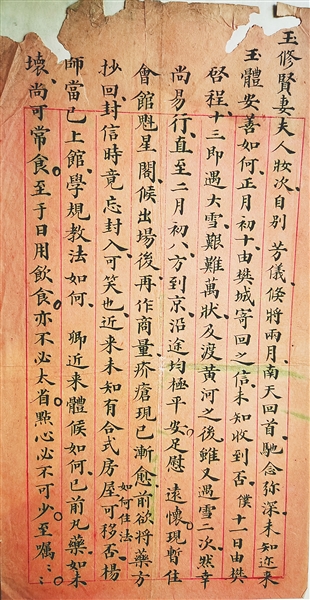 玉修賢妻夫人妝次自别 芳儀倏將兩月南天回首馳念弥深未知近來
玉體安善如何正月初十由樊城寄回之信未知收到否 僕十一日由樊
啓程十三即遇大雪艱難萬狀及渡黃河之後雖又遇雪二次然幸
尚易行直至二月初八方到京沿途均極平安足慰 遠懷現暫住
會館魁星閣候出場後再作商量疥瘡現已漸愈前欲將藥方
抄回封信時竟忘封入可笑也近來未知有合式房屋可移否楊
如何住法
師當已上館學規教法如何 卿近來體候如何已前丸藥如未
壞尚可常食至于日用飲食亦不必太省點心必不可少至囑